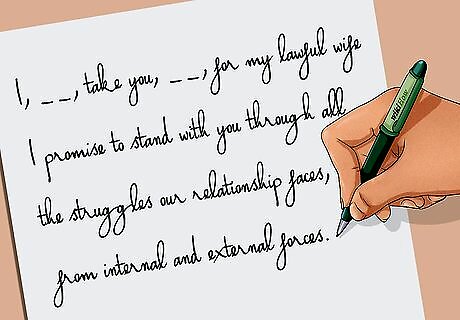 I, _ _, take you, _ _, for my lawful wife
I promise to stand with you through all
the struggles our relationship faces,
from internal and external forces.
wikiHow